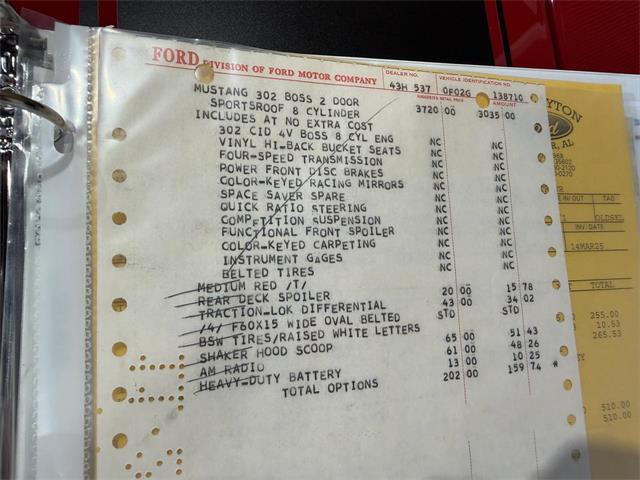 FORD DIVISION OF FORD MOTOR COMPANY
DEALER NO. VEHICLE IDENTIFICATION NO.
43H 537 0F02G 138710
SUGGESTED RETAIL PRICE AMOUNT
MUSTANG 302 BOSS 2 DOOR
SPORTSROOF 8 CYLINDER 3720 00 3035 00
INCLUDES AT NO EXTRA COST
302 CID 4V BOSS 8 CYL ENG NC NC
VINYL HI-BACK BUCKET SEATS NC NC
FOUR-SPEED TRANSMISSION NC NC
POWER FRONT DISC BRAKES NC NC
COLOR-KEYED RACING MIRRORS NC NC
SPACE SAVER SPARE NC NC
QUICK RATIO STEERING NC NC
COMPETITION SUSPENSION NC NC
FUNCTIONAL FRONT SPOILER NC NC
COLOR-KEYED CARPETING NC NC
INSTRUMENT GAGES NC NC
BELTED TIRES
MEDIUM RED /T/
REAR DECK SPOILER 20 00 15 78
TRACTION-LOK DIFFERENTIAL 43 00 34 02
/4/ F60X15 WIDE OVAL BELTED STD STD
BSW TIRES/RAISED WHITE LETTERS
SHAKER HOOD SCOOP 65 00 51 43
AM RADIO 61 00 48 26
HEAVY-DUTY BATTERY 13 00 10 25
TOTAL OPTIONS 202 00 159 74 *
YTON
Ford
R, AL
IN/OUT TAG
OLDSKL
INV. DATE
14MAR25
TOTAL
255.00
10.53
265.53
510.00
510.00